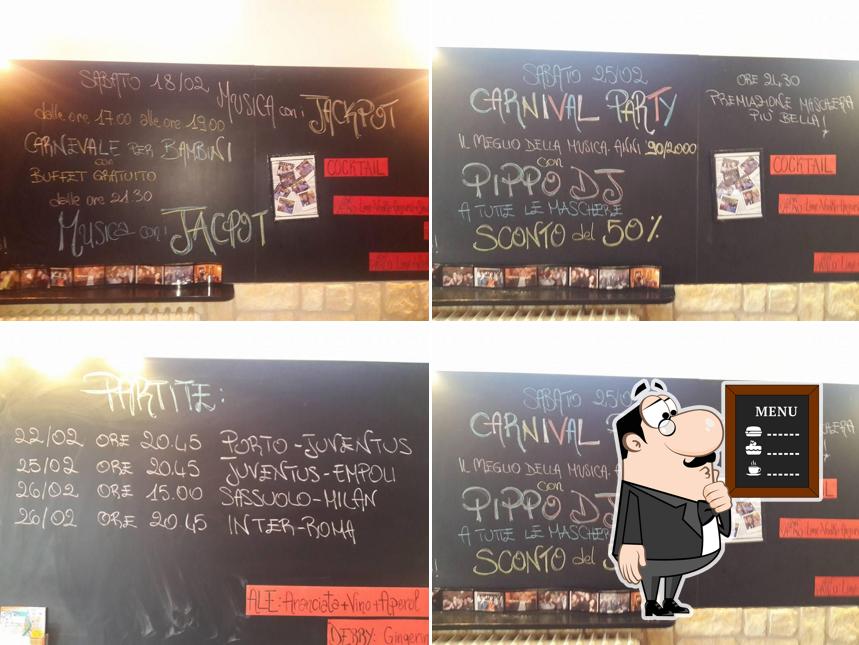 SABATO 18/02
MUSICA con i JACKPOT
dalle ore 17.00 alle ore 19.00
CARNEVALE PER BAMBINI
con
BUFFET GRATUITO
dalle ore 21.30
MUSICA con i JACPOT
COCKTAIL
SABATO 25/02
CARNIVAL PARTY
IL MEGLIO DELLA MUSICA ANNI 90/2000
con
PIPPO DJ
A TUTE LE MASCHERE
SCONTO del 50%
ORE 24,30
PREMIAZIONE MASCHERA
PIÙ BELLA!
COCKTAIL
PARTITE:
22/02 ORE 20.45 PORTO-JUVENTUS
25/02 ORE 20.45 JUVENTUS-EMPOLI
26/02 ORE 15.00 SASSUOLO-MILAN
26/02 ORE 20.45 INTER-ROMA
ALE: Aranciata+Vino+Aperol
DERBY:
SABATO 25/0
CARNIVAL
IL MEGLIO DELLA MUSICA
con
PIPPO DJ
A TUTE LE MASCHERE
SCONTO del
MENU